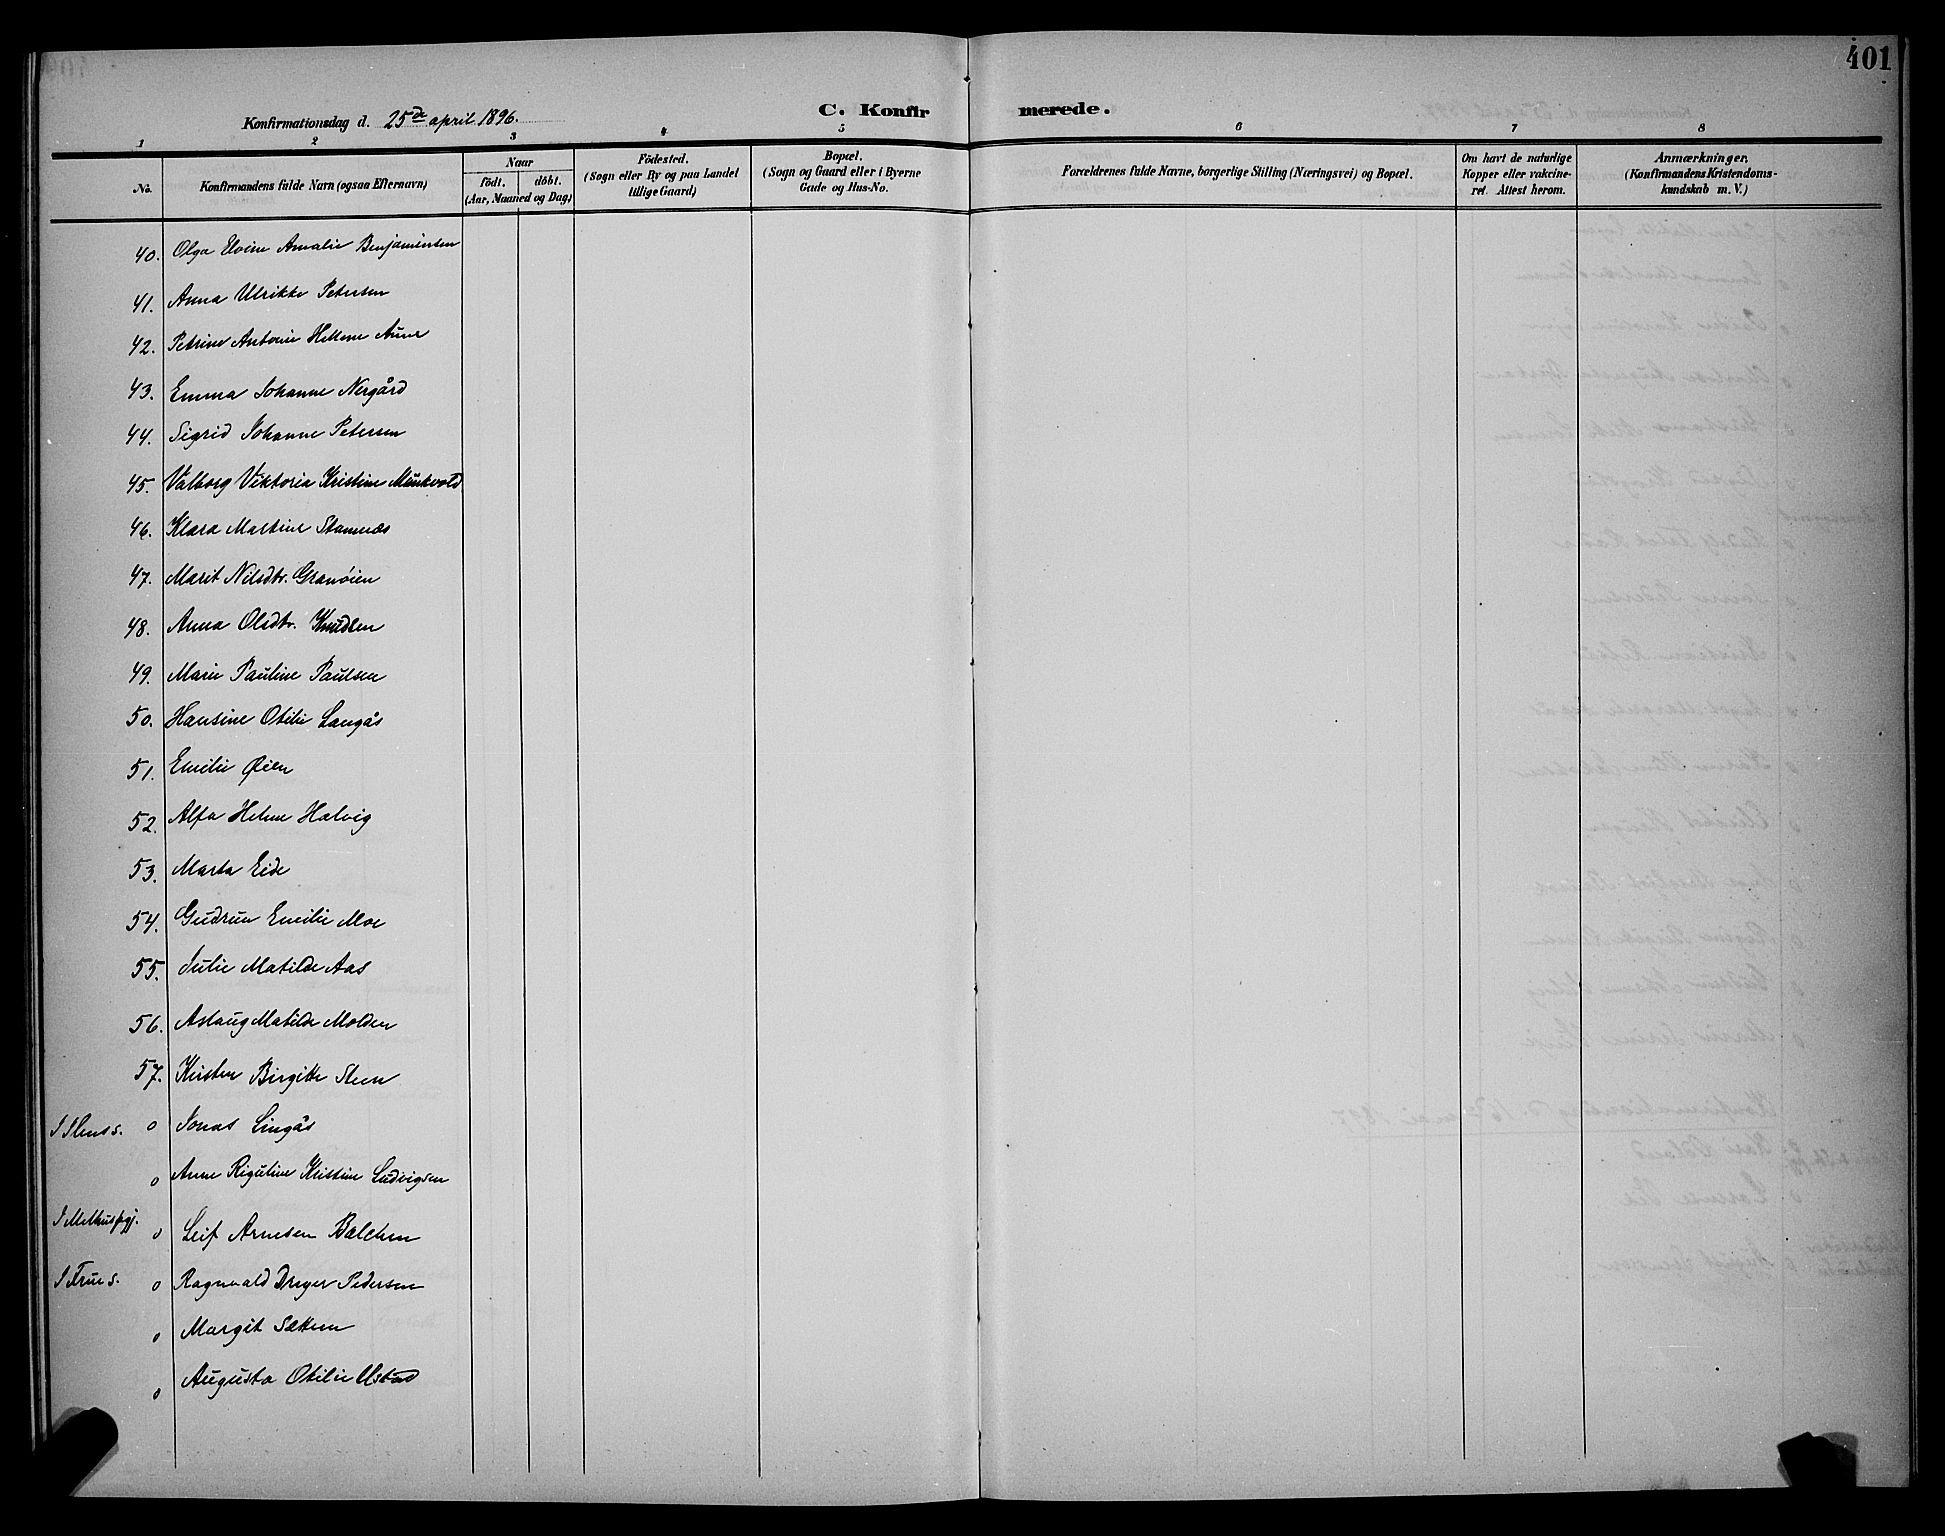 401
Konfirmationsdag d. 25de april 1896.
C. Konfirmerede.
1 2 3 4 5 6 7 8
No.
Konfirmandens fulde Navn (ogsaa Efternavn)
Naar
födt. döbt.
(Aar, Maaned og Dag)
Födested.
(Sogn eller By og paa Landet
tillige Gaard)
Bopæl.
(Sogn og Gaard eller i Byerne
Gade og Hus-No.
Forældrenes fulde Navne, borgerlige Stilling (Næringsvei) og Bopæl.
Om havt de naturlige
Kopper eller vakcine-
ret. Attest herom.
Anmærkninger,
(Konfirmandens Kristendoms-
kundskab m. V.)
40. Olga Elvine Amalie Benjaminsen
41. Anna Ulrikke Petersen
42. Petrine Antonie Hellene Aune
43. Emma Johanne Nergård
44. Sigrid Johanne Petersen
45. Valborg Viktoria Kristine Munkvold
46. Klara Martine Stamnæs
47. Marit Nilsdtr. Granöien
48. Anna Olsdtr. Knudsen
49. Marie Pauline Paulsen
50. Hansine Otilie Langås
51. Emilie Øien
52. Alfa Helene Halvig
53. Marta Eide
54. Gudrun Emilie Moe
55. Julie Matilde Aas
56. Aslaug Matilde Molden
57. Kirsten Birgitte Steen
I Ilens s. o Jonas Lingås
o Anne Rigutine Kristine Ludvigsen
I Melhus pgj. o Leif Arnesen Balchen
I Frue s. o Ragnvald Dreyer Pedersen
o Margit Sættem
o Augusta Otilie Ustad